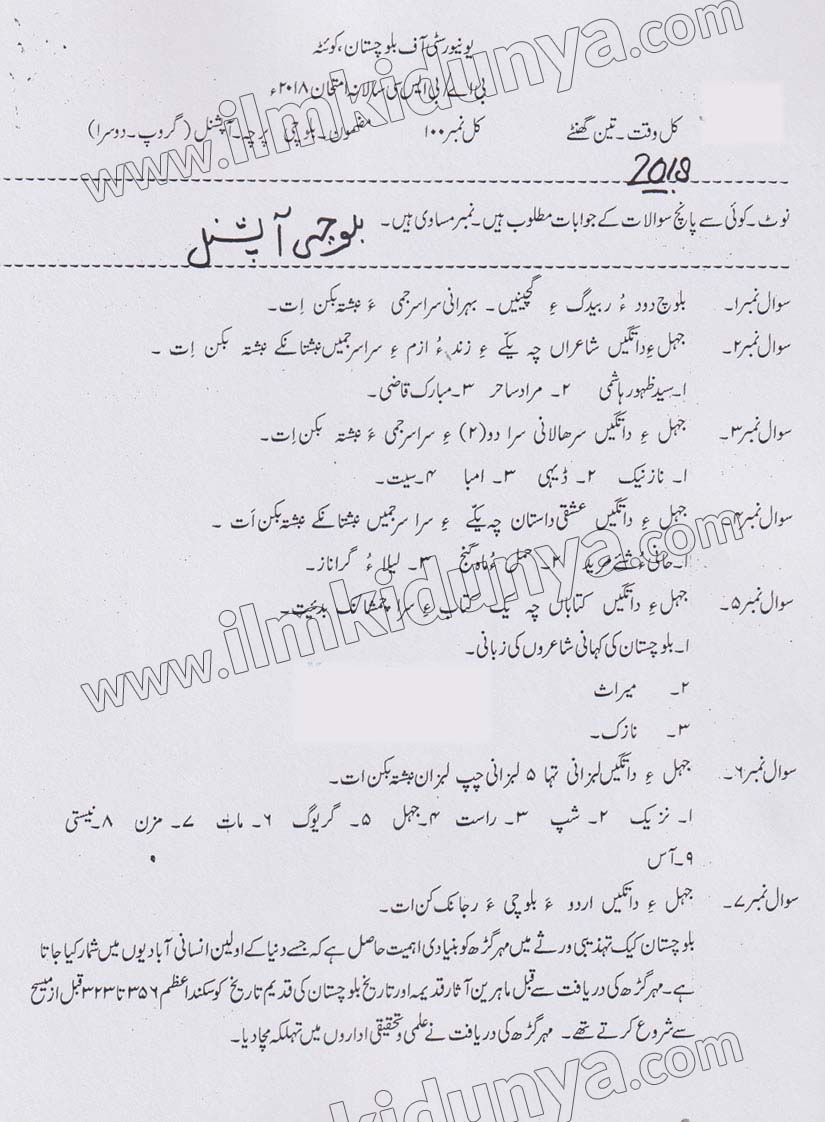 یونیورسٹی آف بلوچستان، کوئٹہ
بی اے/بی ایس سی سالانہ امتحان ۲۰۱۸ء
کل وقت۔ تین گھنٹے کل نمبر ۱۰۰ مضمون۔ بلوچی پرچہ۔ آپشنل (گروپ۔ دوسرا)
2018
نوٹ۔ کوئی سے پانچ سوالات کے جوابات مطلوب ہیں۔ نمبر مساوی ہیں۔
بلوچی آپشنل
سوال نمبر۱۔ بلوچ دود ءُ ربیدگ ءِ گچینیں۔ بہرانی سراسرجمی ءَ نبشتہ بکن اِت۔
سوال نمبر۲۔ جہل ءِ داتگیں شاعراں چہ یکّے ءِ زند ءُ ازم ءِ سراسرجمیں نبشتانکے نبشتہ بکن اِت ۔
ا۔ سید ظہور ہاشمی ۲۔ مراد ساحر ۳۔ مبارک قاضی۔
سوال نمبر۳۔ جہل ءِ داتگیں سرحالانی سرا دو(۲) ءِ سراسرجمی ءَ نبشتہ بکن اِت۔
ا۔ نازنیک ۲۔ ڈیہی ۳۔ امبا ۴۔ سپت۔
سوال نمبر۴۔ جہل ءِ داتگیں عشقی داستان چہ یکّے ءِ سراسرجمیں نبشتانکے نبشتہ بکن اَت ۔
ا۔ حانی ءُ شئے مرید ۲۔ حمل ءُ ماہ گنج ۳۔ لیلا ءُ گراناز۔
سوال نمبر۵۔ جہل ءِ داتگیں کتاباں چہ یک کتاب ءِ سرا چمشانک بدئیت۔
ا۔ بلوچستان کی کہانی شاعروں کی زبانی۔
۲۔ میراث
۳۔ نازک۔
سوال نمبر۶۔ جہل ءِ داتگیں لبزانی تہا ۵ لبزانی چپ لبزان نبشتہ بکن ات۔
ا۔ نزیک ۲۔ شپ ۳۔ راست ۴۔ جہل ۵۔ گریوگ ۶۔ مات ۷۔ مزن ۸۔ نیستی
۹۔ آس
سوال نمبر۷۔ جہل ءِ داتگیں اردو ءَ بلوچی ءَ رجانک کن ات۔
بلوچستان کیک تہذیبی ورثے میں مہر گڑھ کو بنیادی اہمیت حاصل ہے کہ جسے دنیا کے اولین انسانی آبادیوں میں شمار کیا جاتا
ہے۔ مہر گڑھ کی دریافت سے قبل ماہرین آثار قدیمہ اور تاریخ بلوچستان کی قدیم تاریخ کو سکندا عظم ۳۵۶ تا ۳۲۳ قبل از مسیح
سے شروع کرتے تھے۔ مہر گڑھ کی دریافت نے علمی و تحقیقی اداروں میں تہلکہ مچا دیا۔
www.ilmkidunya.com
www.ilmkidunya.com
kidunya.com